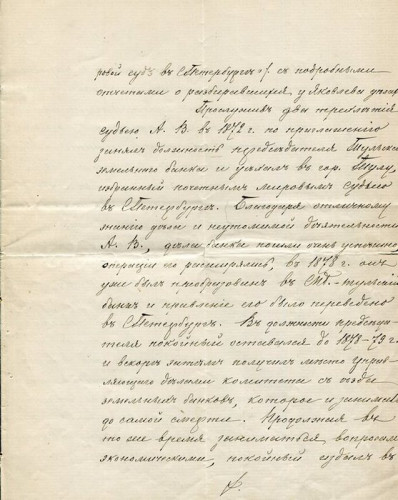 ровой судъ въ С. Петербургѣ съ подробными
отчетами о разбиравшихся у Яковлева
Прослуживъ два трехлѣтія
судьею А. В. въ 1872 г. по приглашенію
занялъ должность предсѣдателя Тульскаго
банка и уѣхалъ въ гор. Тулу,
избранный почетнымъ мировымъ судьею
въ С. Петербургѣ. Благодаря отличному
знанію дѣла и неутомимой дѣятельности
А. В., дѣла банка пошли очень успѣшно,
операціи его расширялись, въ 1878 г. онъ
уже былъ преобразованъ въ СПб.-Тульскій
банкъ и правленіе его было переведено
въ С. Петербургъ. Въ должности предсѣда-
теля покойный оставался до 1878-79 г.
и вскорѣ затѣмъ получилъ мѣсто управ-
ляющаго дѣлами комитета съѣзда
земельныхъ банковъ, которое и занималъ
до самой смерти. Продолжая въ
то же время заниматься вопросами
экономическими, покойный издалъ въ